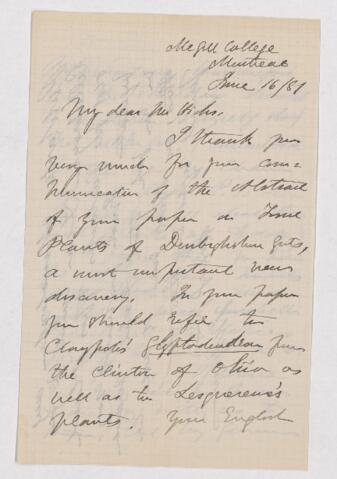 McGill College
Montreal
June 16/81
My dear Mr Hicks.
I thank you
very much for your com=
munication of the Abstract
of your paper on Land
Plants of Denbighshire Grits,
a most important new
discovery. In your paper
you should refer to
Claypole's Glyptodendron from
the Clinton of Ohio as
well as to Lesquereux's
plants. Your English